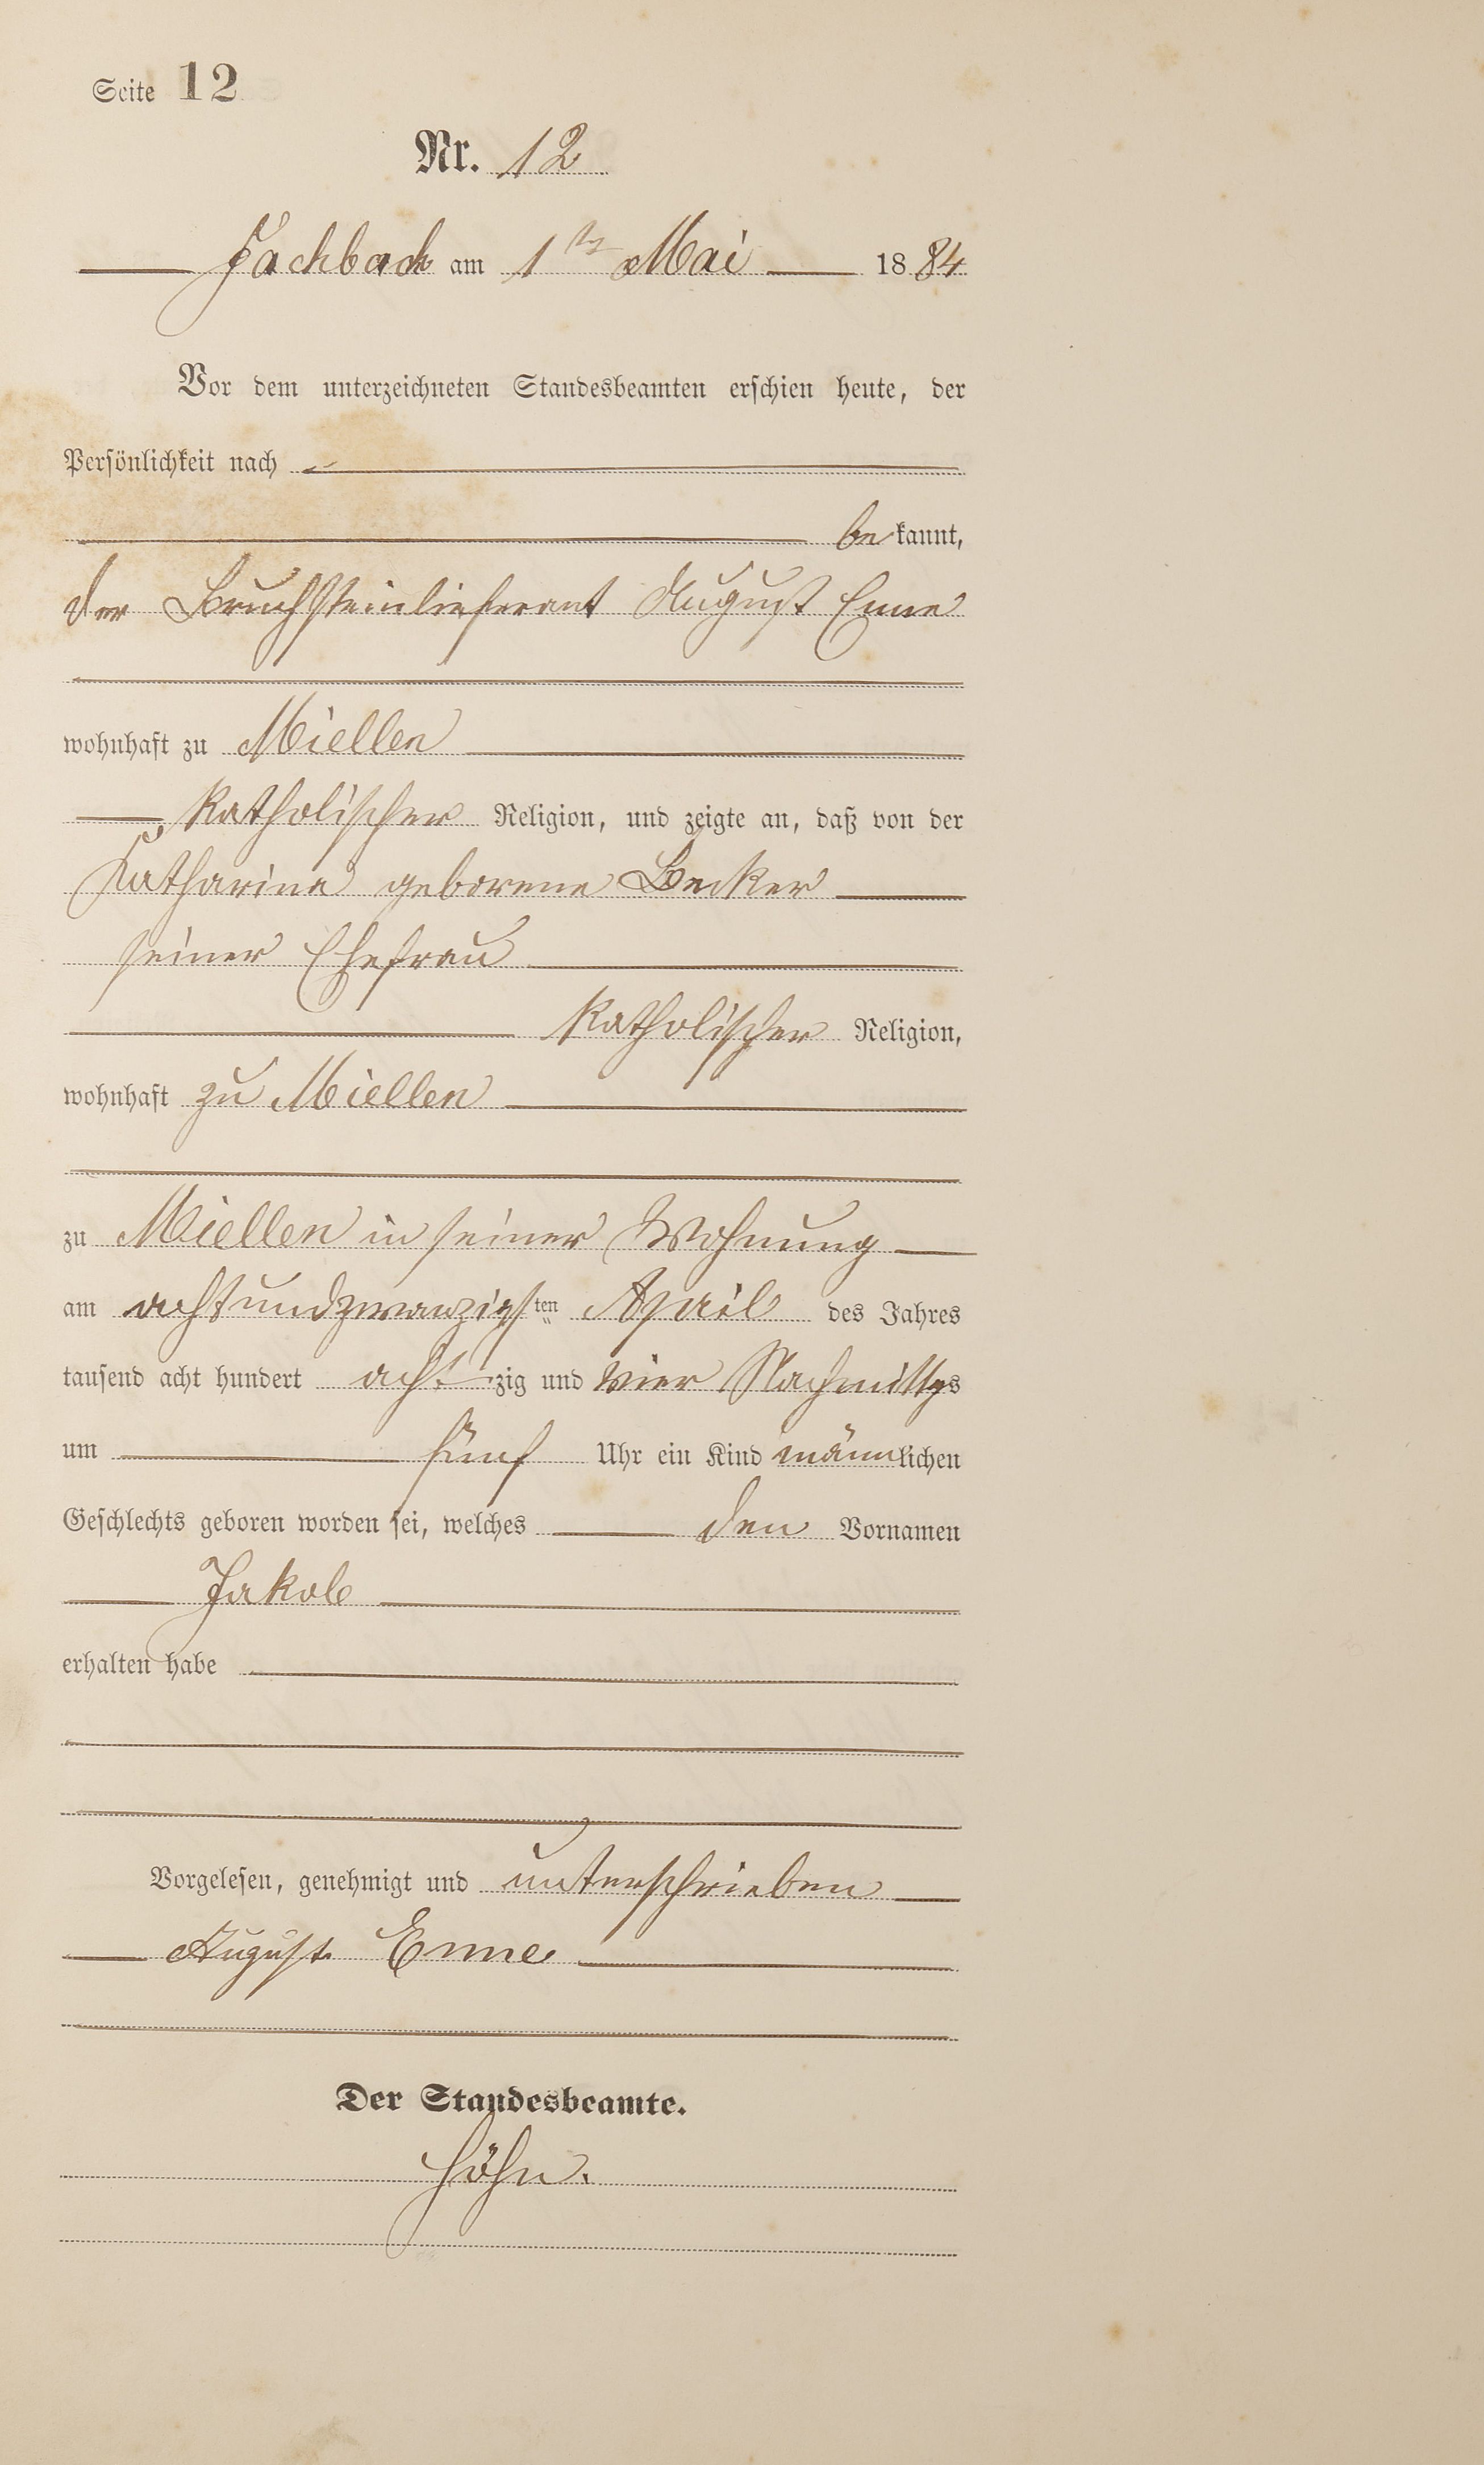 Seite 12
Nr. 12
Fachbach am 1ten Mai 1884
Vor dem unterzeichneten Standesbeamten erschien heute, der
Persönlichkeit nach
bekannt,
der Bruchsteinlieferant August Enne
wohnhaft zu Miellen
katholischer Religion, und zeigte an, daß von der
Katharina geborene Becker
seiner Ehefrau
katholischer Religion,
wohnhaft zu Miellen
zu Miellen in seiner Wohnung
am achtundzwanzigsten April des Jahres
tausend acht hundert achtzig und vier Nachmittgs
um fünf Uhr ein Kind männlichen
Geschlechts geboren worden sei, welches den Vornamen
Jakob
erhalten habe
Vorgelesen, genehmigt und unterschrieben
August Enne
Der Standesbeamte.
Höhn.